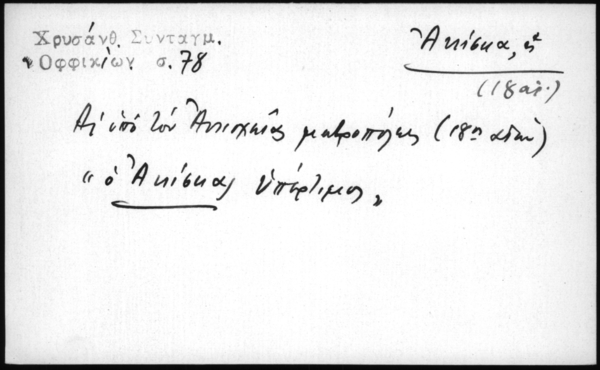 Χρυσάνθ. Συνταγμ.
Ὀφφικίων σ. 78
Ἀκίσκα, ἡ
(18 αἰ.)
Αἱ ὑπὸ τὸν Ἀντιοχείας μητροπόλεις (18ου αἰῶν)
"ὁ Ἀκίσκας ὑπέρτιμος"